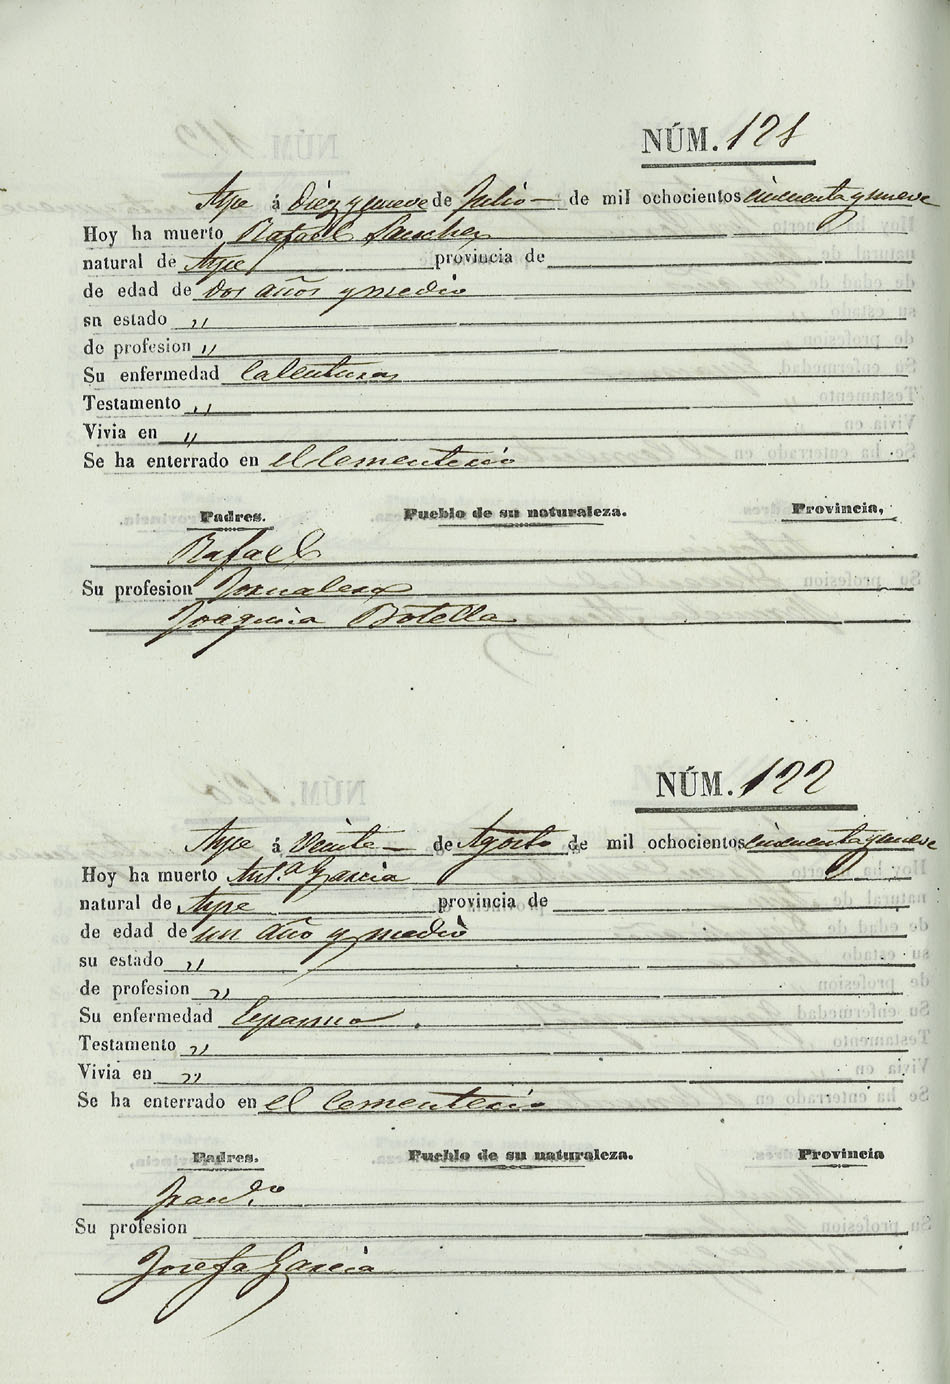 NÚM. 121
Aspe á diez y nueve de Julio de mil ochocientos cincuenta y nueve
Hoy ha muerto Rafael Sanchez
natural de Aspe provincia de
de edad de dos años y medio
sn estado „
de profesion „
Su enfermedad Calenturas
Testamento „
Vivia en „
Se ha enterrado en el Cementerio
Padres. Pueblo de su naturaleza. Provincia,
Rafael
Su profesion Jornalero
Joaquina Botella
NÚM. 122
Aspe á Veinte de Agosto de mil ochocientos cincuenta y nueve
Hoy ha muerto Ant.ª Garcia
natural de Aspe provincia de
de edad de un año y medio
su estado „
de profesion „
Su enfermedad Espasmo
Testamento „
Vivia en „
Se ha enterrado en el Cementerio
Padres. Pueblo de su naturaleza. Provincia
Su profesion
Josefa Garcia